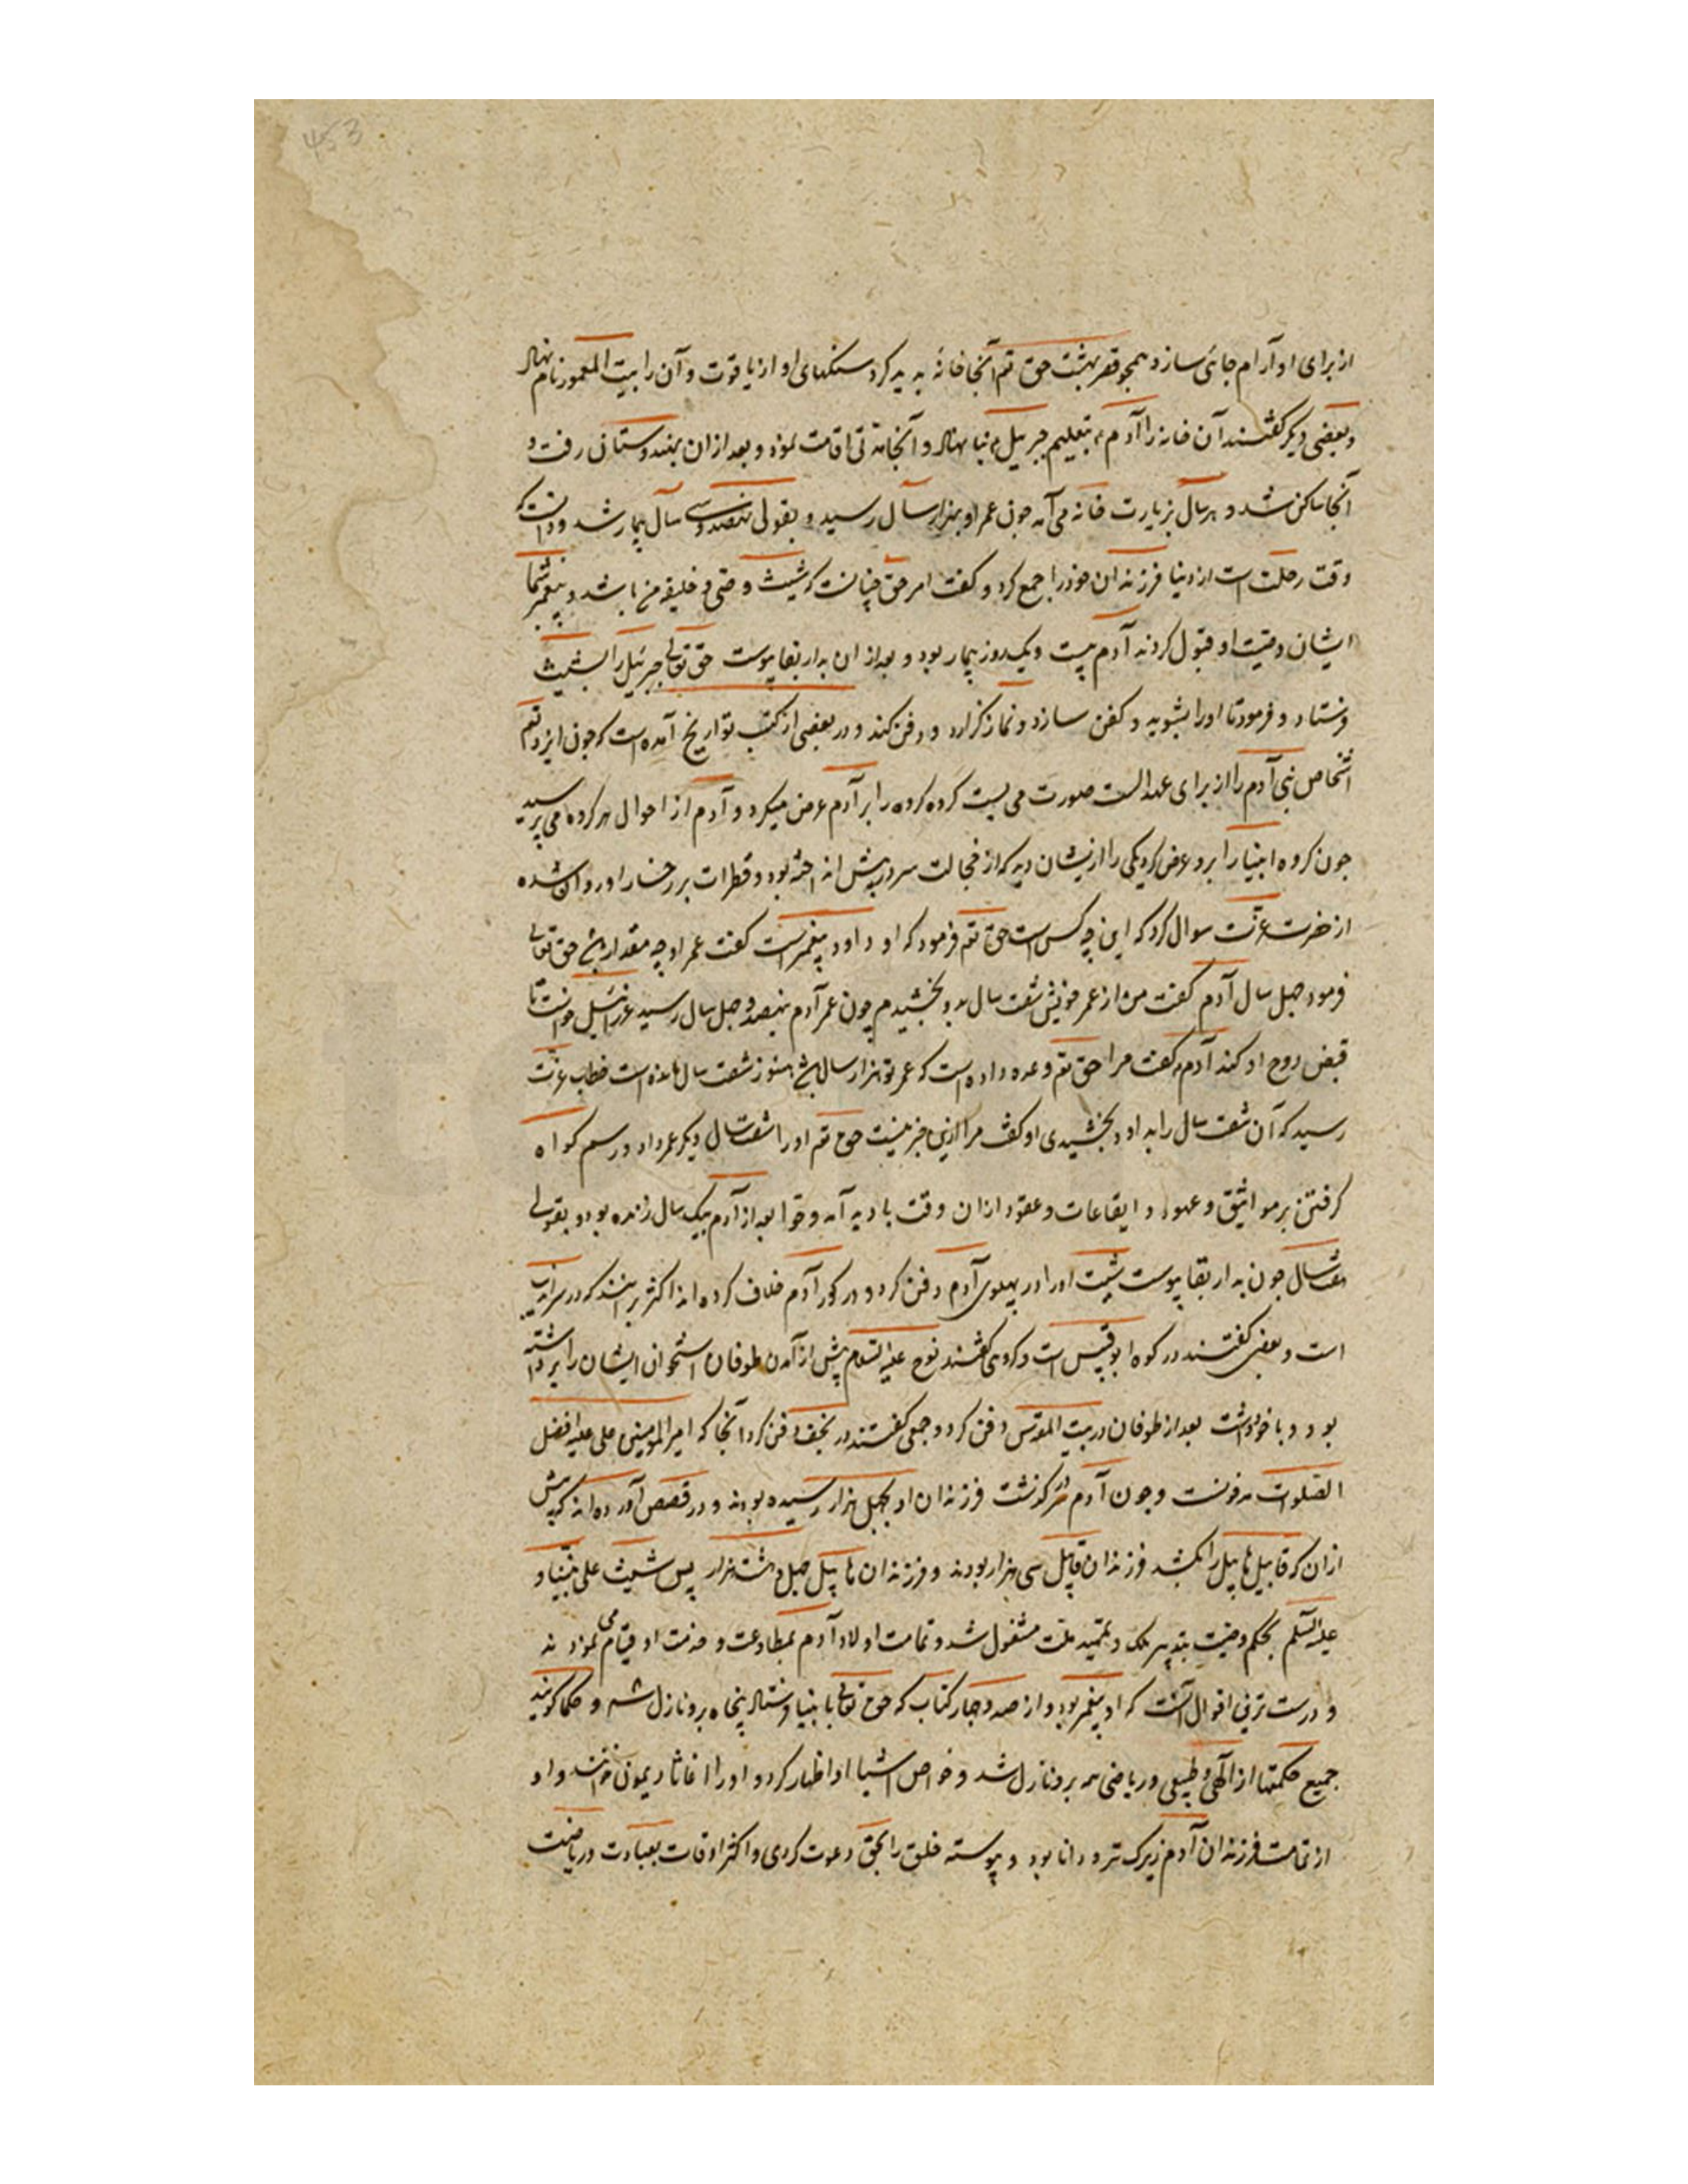 453
از برای او آرام جائی سازد همچو قصر بهشت حق تع آنجا خانهٔ پدید کرد سنگهای او از یاقوت و آن را بیت المعمور نام نهاد
و بعضی دیگر گفتند آن خانه را آدم بتعلیم جبرییل بنیا نهاد و آنجا مدتی اقامت نمود و بعد از ان بهندوستان رفت و
آنجا ساکن شد و هر سال بزیارت خانه می آمد جون عمر او بهزار سال رسید و بقولی نهصد و سی سال بیمار شد و دانست که
وقت رحلت است از دنیا فرزندان خود را جمع کرد و گفت امر حق چنانست که شیث وصی و خلیفه من باشد و پیغمبر شما
ایشان وصیت او قبول کردند آدم بیست و یک روز بیمار بود و بعد از ان بدار بقا پیوست حق تعالی جبرئیل را بشیث
فرستاد و فرمود تا او را بشوید و کفن سازد و نماز گزارد و دفن کند و در بعضی از کتب تواریخ آمده است که جون ایزد تعم
اشخاص بنی آدم را از برای عهد الست صورت می بست کروه کروه را بر آدم عرض میکرد و آدم از احوال هر کروه می پرسید
جون کروه انبیا را برو عرض کرد یکی را از یشان دید که از خجالت سر در پیش انداخته بود و قطرات بر رخسار او روان شده
از حضرت عزت سوال کرد که این چه کس است حق تع فرمود که او داود پیغمبر است گفت عمر او چه مقدار باشد حق تعالی
فرمود جهل سال آدم گفت من از عمر خویش شصت سال بدو بخشیدم چون عمر آدم بنهصد و جهل سال رسید عزرائیل خواست تا
قبض روح او کند آدم گفت مرا حق تع وعده داده است که عمر تو هزار سال باشد هنوز شصت سال مانده است خطاب عزت
رسید که آن شصت سال را به داود بخشیدی او گفت مرا ازین خبر نیست حق تع او را شصت سال دیگر عمر داد و رسم کواه
گرفتن بر مواثیق و عهود و ایقاعات و عقود از ان وقت بادید آمد و حوا بعد از آدم بیک سال زنده بود و بقولی
هفت سال جون بدار بقا پیوست شیث او را در پهلوی آدم دفن کرد و در کور آدم خلاف کرده اند اکثر برانند که در سراندیب
است و بعضی گفتند در کوه ابو قبیس است و کروهی گفتند نوح علیه السلام پیش از آمدن طوفان استخوان ایشان را برداشته
بود و با خود داشت بعد از طوفان در بیت المقدس دفن کرد و جمعی گفتند در نجف دفن کرد آنجا که امیر المومنین علی علیه افضل
الصلوات مدفونست و جون آدم در گذشت فرزندان او بجهل هزار رسیده بودند و در قصص آورده اند که پیش
از ان که قابیل هابیل را بکشد فرزندان قابیل سی هزار بودند و فرزندان هابیل جهل و هشت هزار پس شیث علی نبینا و
علیه السلم بحکم وصیت بتدبیر ملک و تمهید ملت مشغول شد و تمامت اولاد آدم بمطاوعت و خدمت او قیام می نمودند
و درست ترین اقوال آنست که او پیغمبر بود و از صد و جهار کتاب که حق تعالی بانبیا فرستاد پنجاه برو نازل شد و حکما گویند
جمیع حکمتها از الهی و طبیعی و ریاضی همه برو نازل شد و خواص اشیا او اظهار کرد و او را اغاثا ذیمون خوانند و او
از تمامت فرزندان آدم زیرک تر و دانا بود و پیوسته خلق را بحق دعوت کردی و اکثر اوقات بعبادت و ریاضت